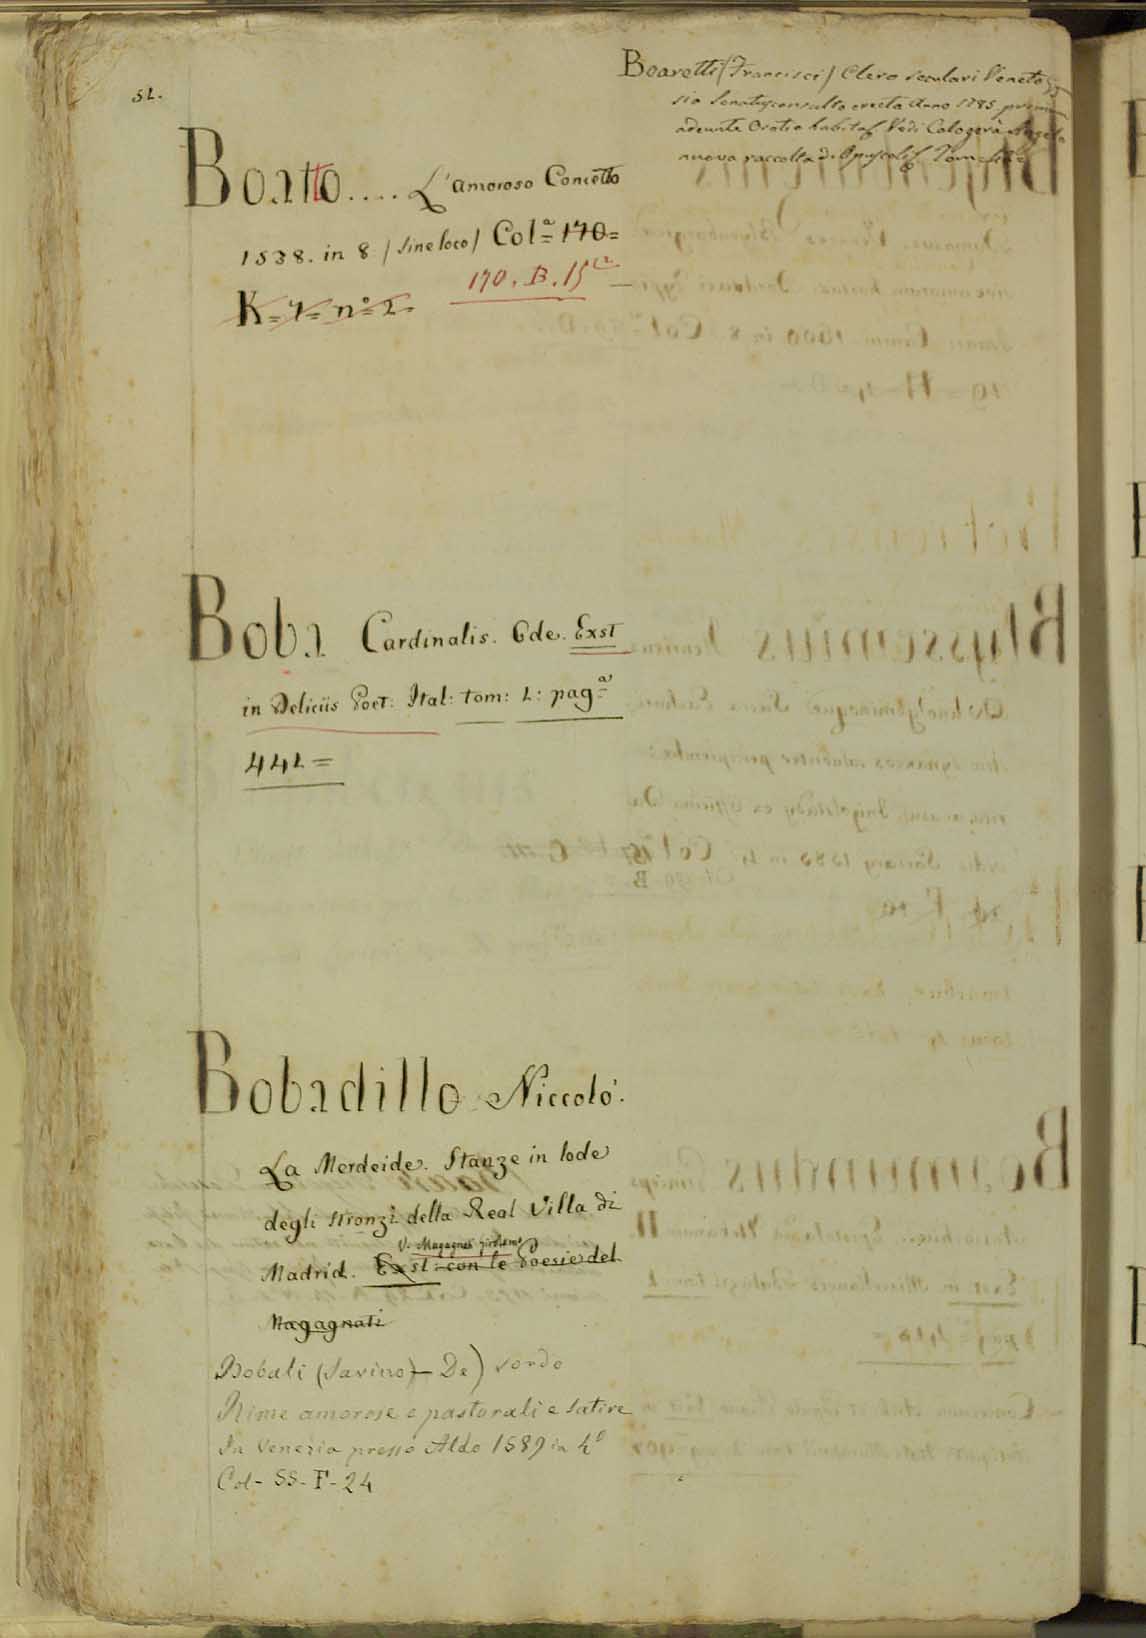 51.
Boaretti (Francisci) Clero seculari Veneto
sio Senatusconsulto erecta Anno 1785.
adeunte Oratio habita Vedi Calogerà Angelo
nuova raccolta di Opuscoli Tom.
Boatto.... L'amoroso Concetto
1538. in 8 / sine loco / Colª= 170=
170. B. 15
K= 7= nº= 2=
Boba Cardinalis. Ode. Exst
in Deliciis Poet: Ital: tom: 1: pagª=
441=
Bobadillo Niccolò.
La Merdeide. Stanze in lode
degli stronzi della Real Villa di
V. Magagnati Girolamo
Madrid. Exst: con le Poesie del
Magagnati
Bobali (Savino) - De) sordo
Rime amorose e pastorali e satire
In Venezia presso Aldo 1589 in 4º
Col- SS- F- 24